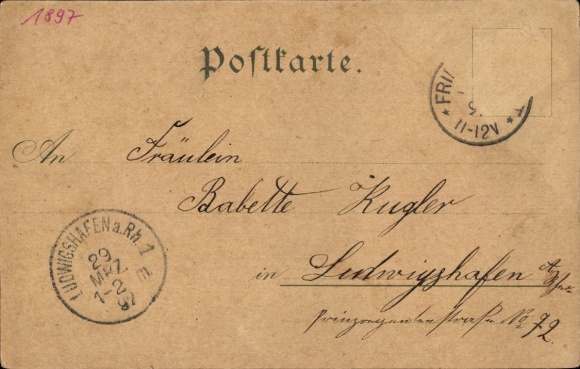 1897
Postkarte.
FRI
11-12V
An Fräulein
Babette Kugler
in Ludwigshafen a/
Prinzregentenstraße No 72.
LUDWIGSHAFEN a. Rh. 1
29
MRZ
1-2
97